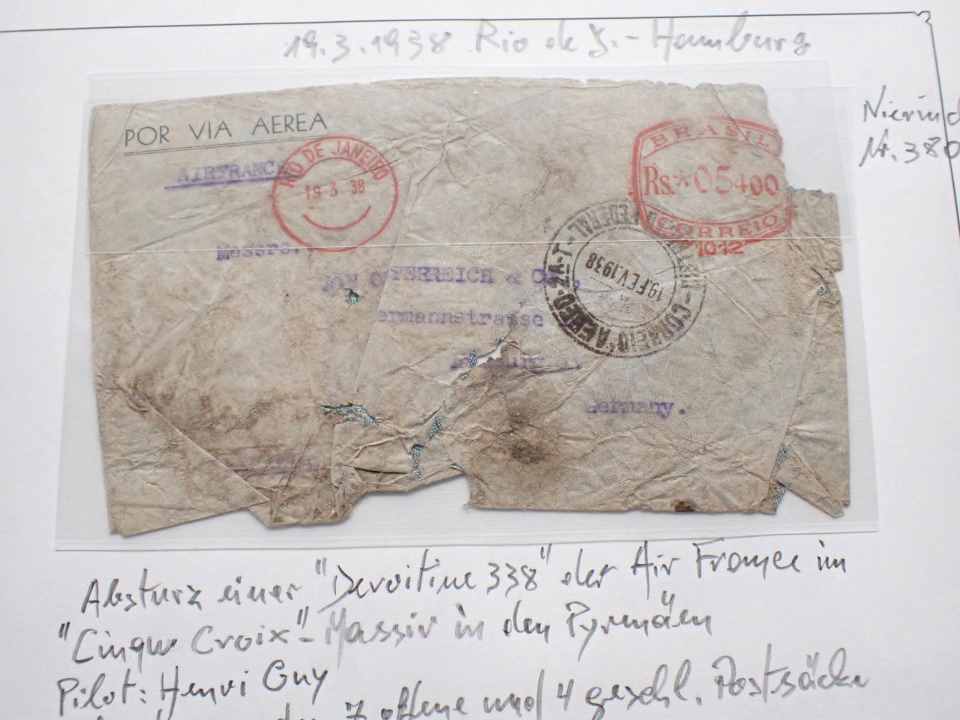 19.3.1938 Rio de J. - Hamburg
Nr. 380
POR VIA AEREA
AIRFRANCE
RIO DE JANEIRO
19 3 38
BRASIL
Rs.*05400
CORREIO
1012
CORREIO AEREO-2A-T
FEDERAL
19.FEV.1938
Messrs.
& Co.,
ermannstrasse
Germany.
Absturz einer "Devoitine 338" der Air France im
"Cinque Croix"-Massiv in den Pyrenäen
Pilot: Henri Guy
7 offene und 4 geschl. Postsäcke